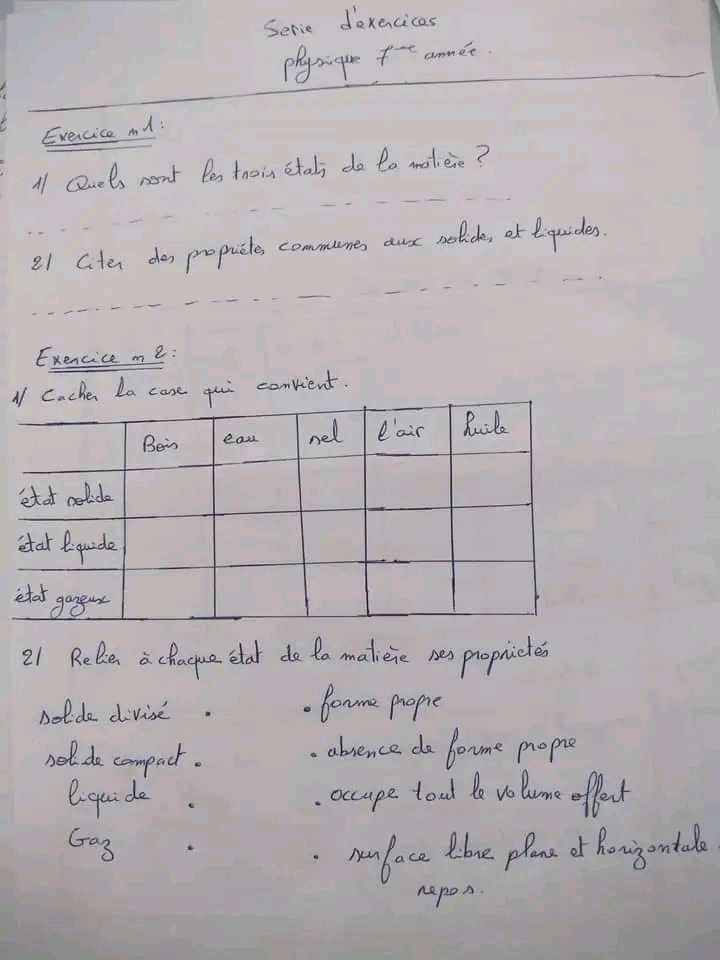 Serie d'exercices
physique 7ème année.
Exercice n1:
1/ Quels sont les trois états de la matière ?
2/ Citer des propriétés communes aux solides et liquides.
Exercice n 2:
1/ Cacher la case qui convient.
Bois eau sel l'air huile
état solide
état liquide
état gazeux
2/ Relier à chaque état de la matière ses proprietés
solide divisé . . forme propre
solide compact . . absence de forme propre
liquide . . occupe tout le volume offert
Gaz . . surface libre plane et horizontale
repos.